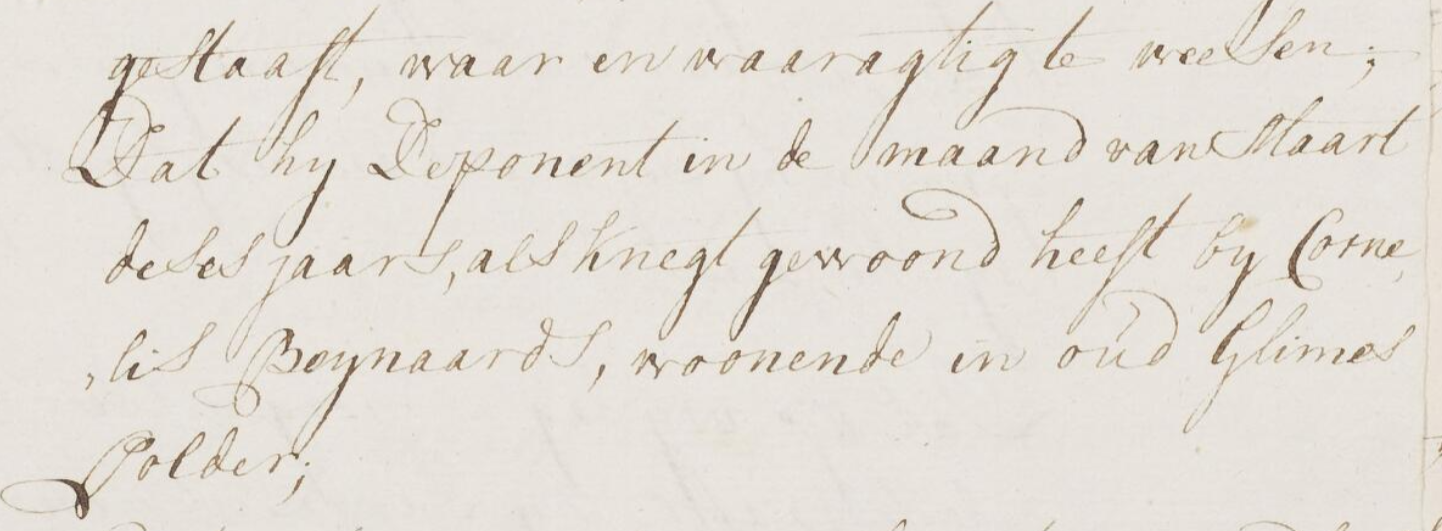 gestaaft, waar en waaragtig te weesen;
Dat hy Deponent in de maand van Maart
deses jaars, als knegt gewoond heeft by Corne,
,lis Beynaards, woonende in oud Glimes
Polder;